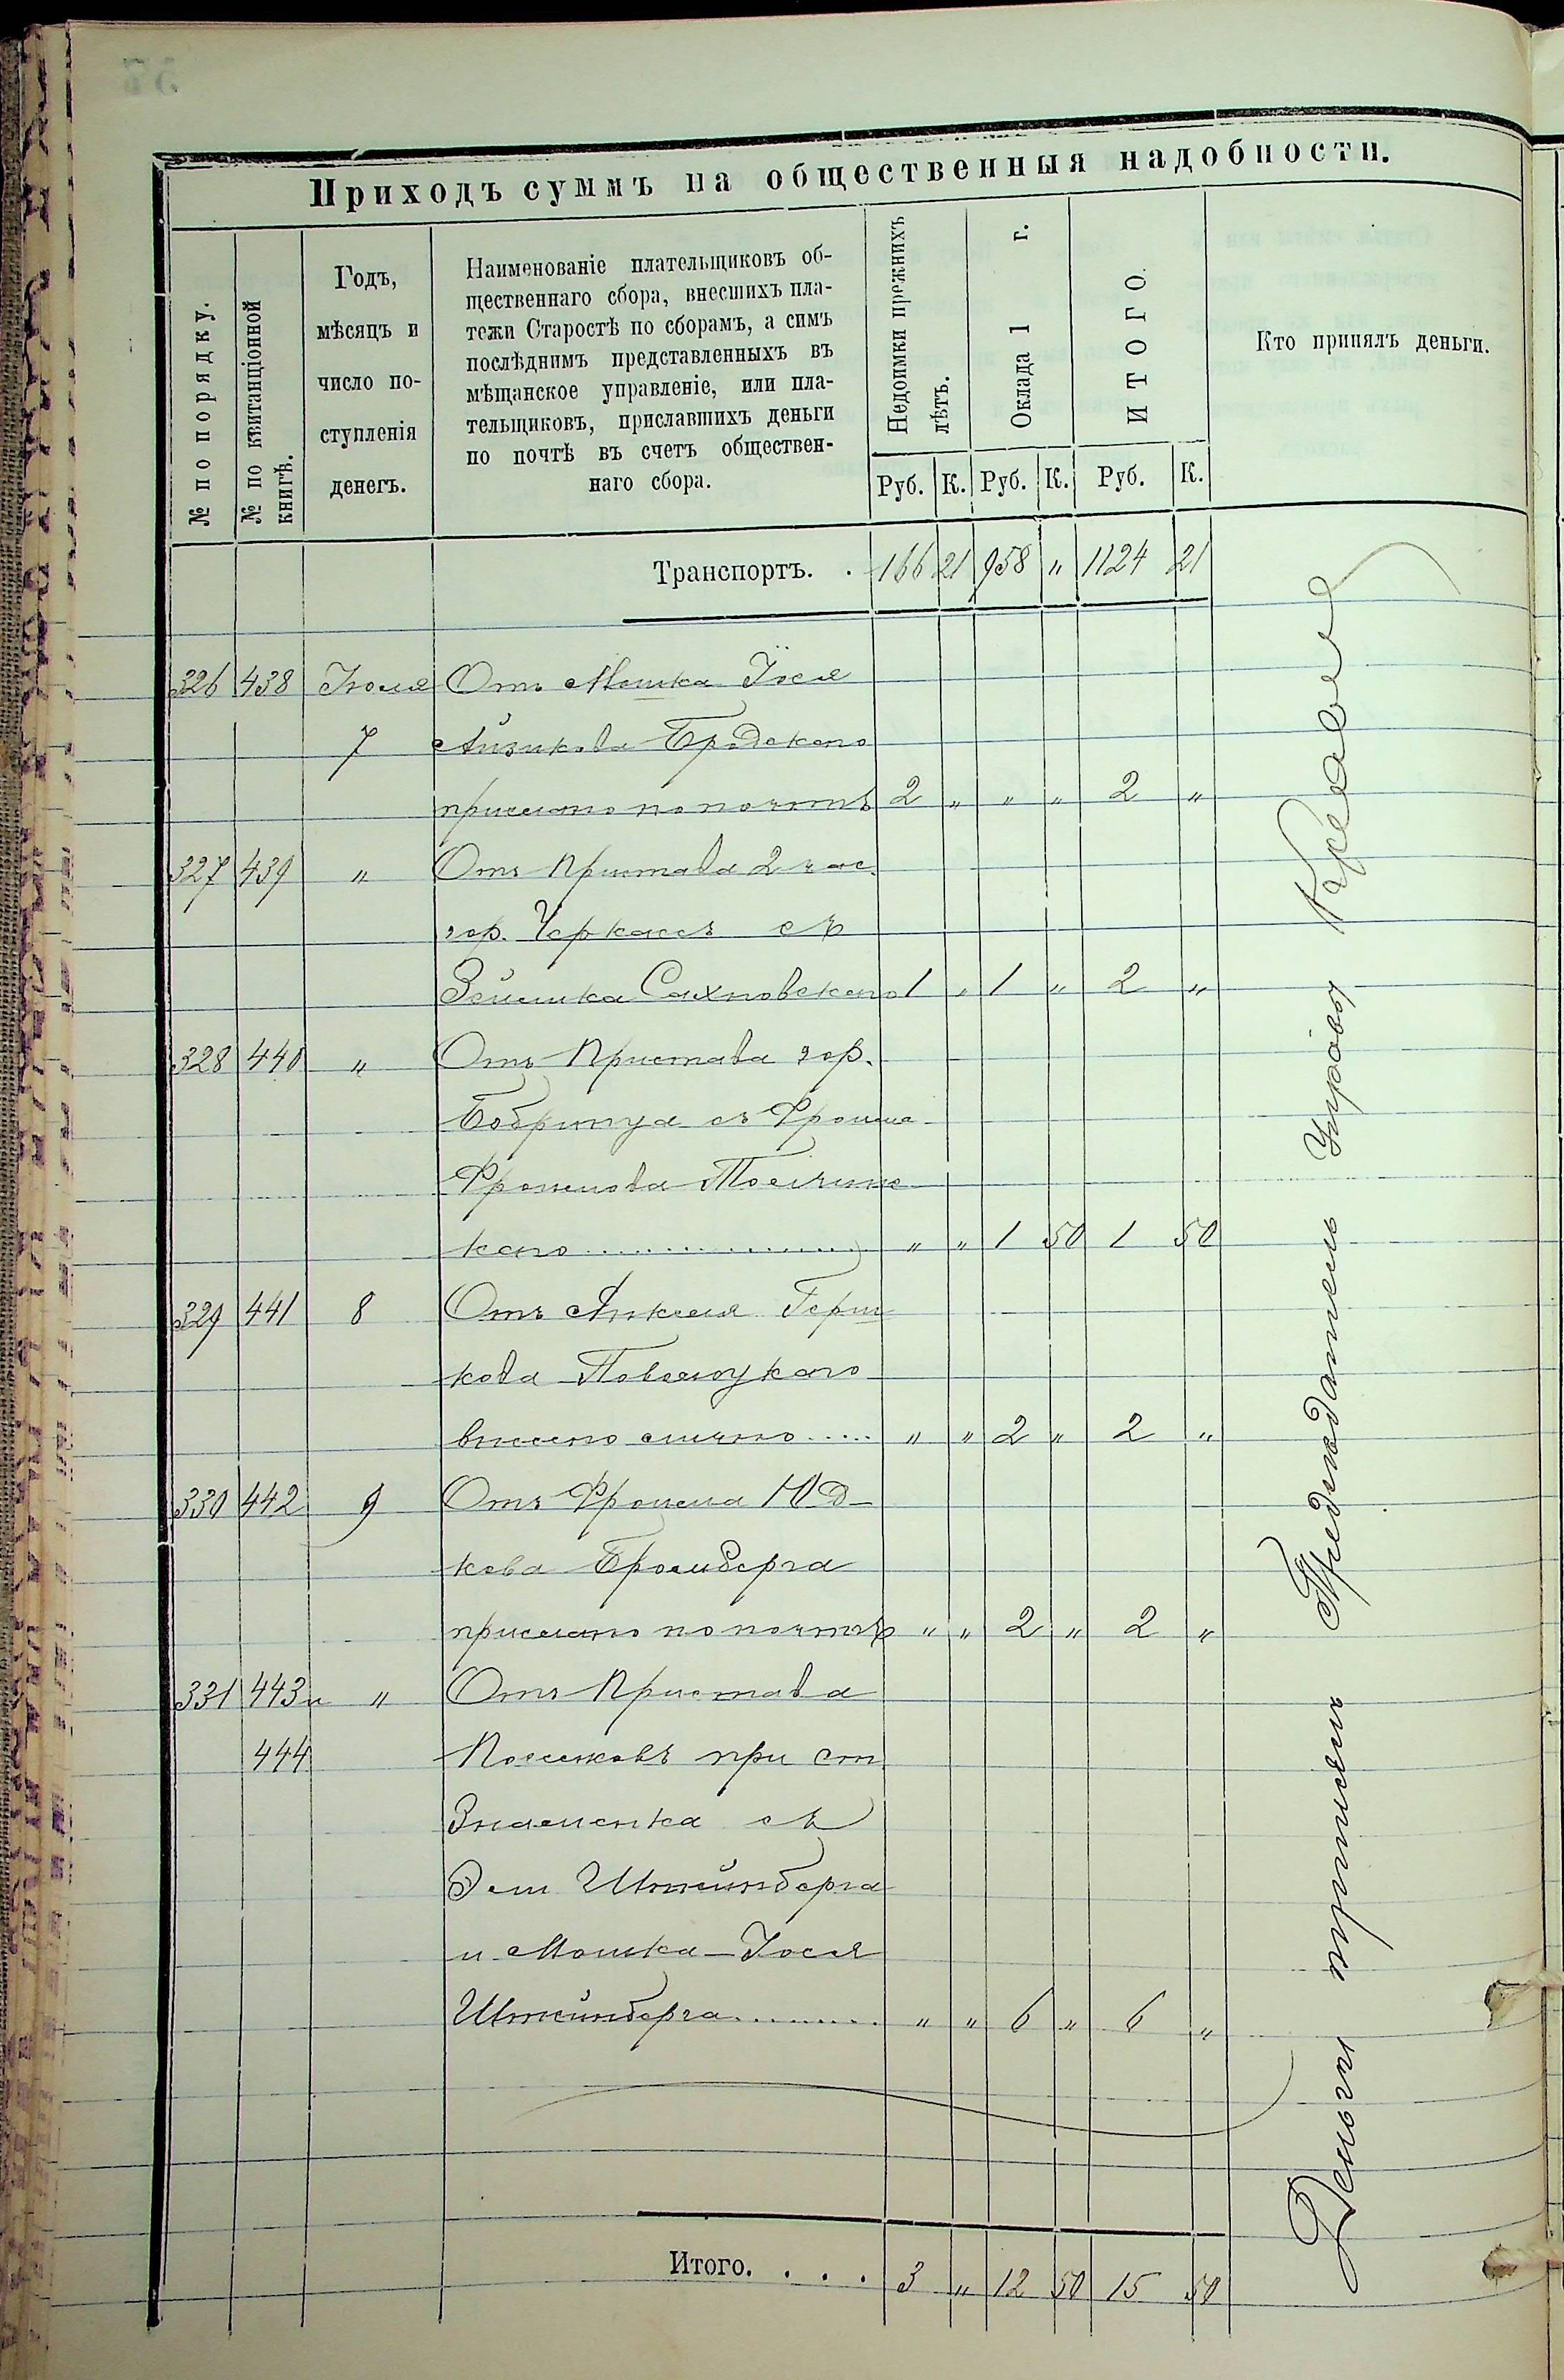 Приходъ суммъ на общественныя надобности.
№ по порядку.
№ по квитанціонной
книгѣ.
Годъ,
мѣсяцъ и
число по-
ступленія
денегъ.
Наименованіе плательщиковъ об-
щественнаго сбора, внесшихъ пла-
тежи Старостѣ по сборамъ, а симъ
послѣднимъ представленныхъ въ
мѣщанское управленіе, или пла-
тельщиковъ, приславшихъ деньги
по почтѣ въ счетъ обществен-
наго сбора.
Недоимки прежнихъ
лѣтъ.
Оклада 1 г.
ИТОГО.
Кто принялъ деньги.
Руб. К. Руб. К. Руб. К.
Транспортъ. . 166 21 958 " 1124 21
326 438 Іюля Отъ Мошка Іося
7 Айзикова Бродскаго
прислано по почтѣ 2 " " " 2 "
327 439 " Отъ Пристава 2 час.
гор. Черкассъ съ
Зейлика Сахновскаго 1 " 1 " 2 "
328 440 " Отъ Пристава гор.
Бобринца съ Фроима
Фроимова Толчинс
каго " " 1 50 1 50
329 441 8 Отъ Анкеля Герш
кова Поволоцкаго
внесено лично " " 2 " 2 "
330 442 9 Отъ Фроима Юд-
кова Бромберга
прислано по почтѣ " " 2 " 2 "
331 443 и " Отъ Пристава
444 Поселковъ при ст
Знаменка съ
Эли Штейнберга
и Мошка-Іося
Штейнберга " " 6 " 6 "
Итого. . . . 3 " 12 50 15 50
Деньги принялъ Предсѣдатель Управы